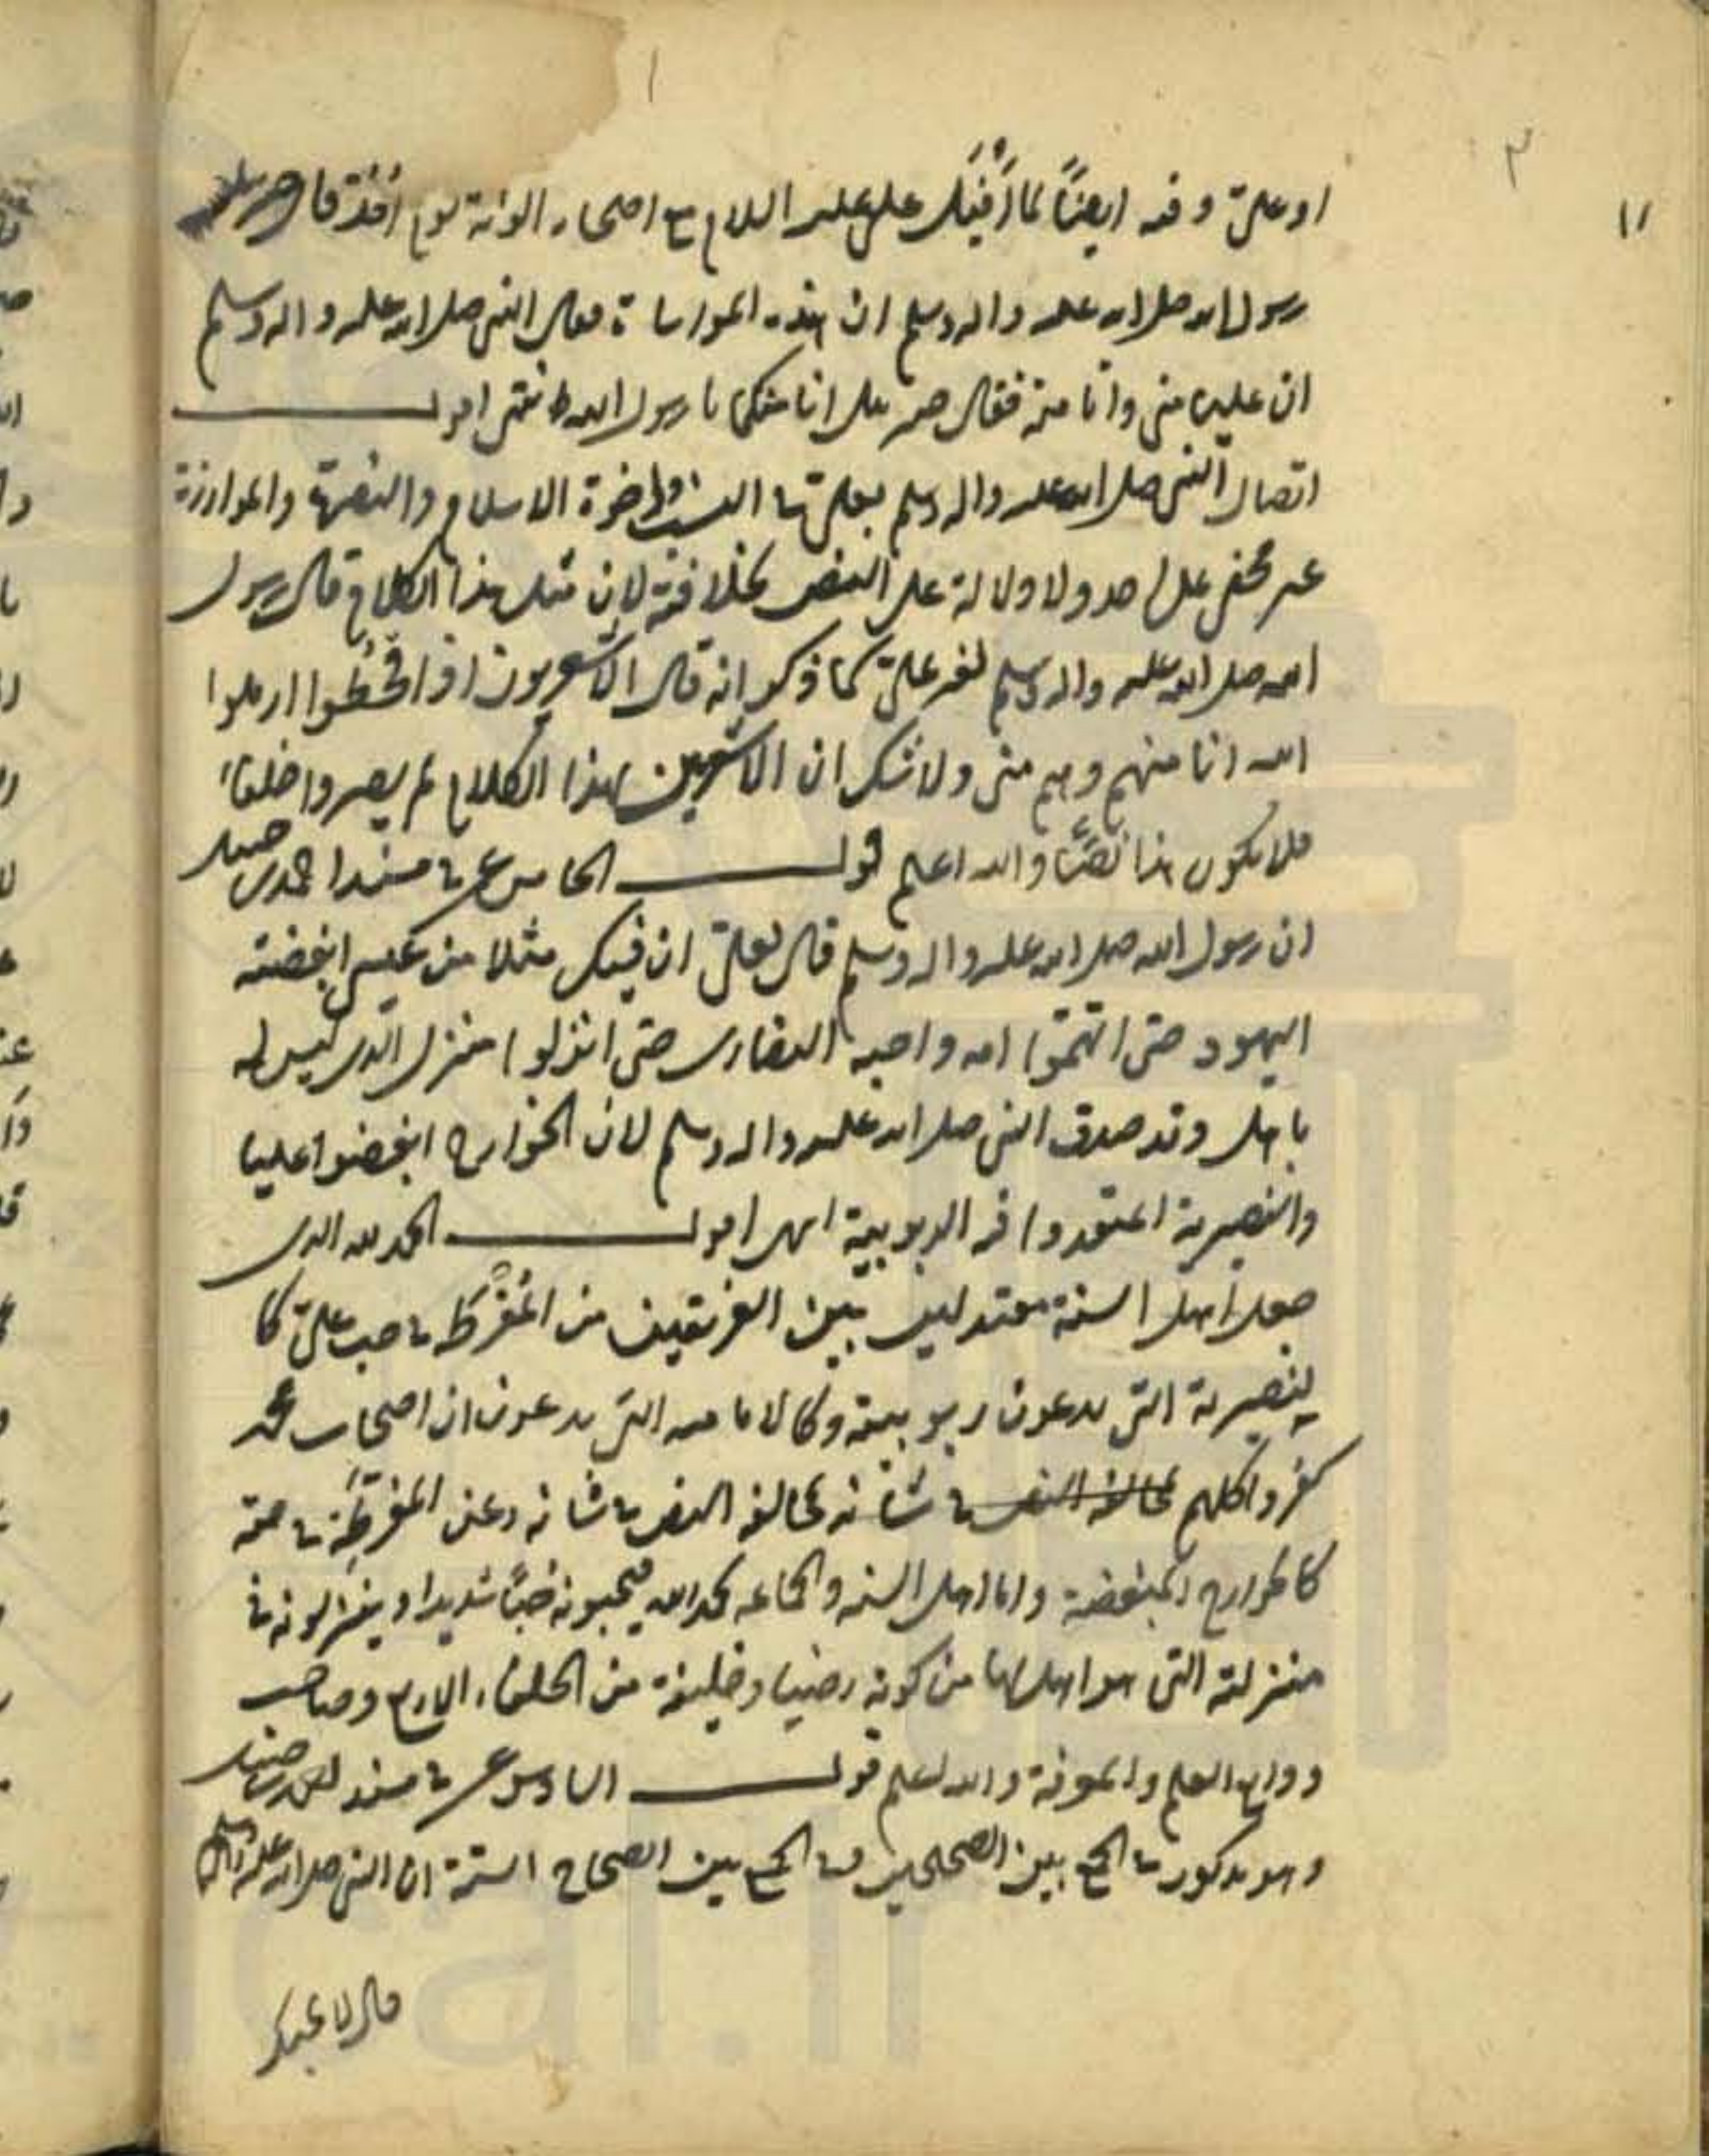 او علىّ وفيه ايضًا لما قتل على عليه السلام اصحاب الوية يوم اُحُد قال جبرئيل
رسول الله صلى الله عليه واله وسلم ان هذه المواساة فقال النبى صلى الله عليه واله وسلم
ان عليا منى وانا منه فقال جبرئيل انا منكما يا رسول الله انتهى اقول
اتصال النبى صلى الله عليه واله وسلم بعلىّ فى النسب واخوة الاسلام والنصرة والموازرة
غير مخفى على احد ولا دلالة على النص بخلافته لان مثل هذا الكلام قال رسول
الله صلى الله عليه واله وسلم لغير علىّ كما ذكر انه قال الاشعريون اذا قحطوا ارملوا
انا منهم وهم منى ولا شك ان الاشعريين بهذا الكلام لم يصيروا خلفاء
فلا يكون هذا نصًّا والله اعلم قول الخامس عشر فى مسند احمد بن حنبل
ان رسول الله صلى الله عليه واله وسلم قال لعلىّ ان فيك مثلا من عيسى ابغضته
اليهود حتى اتهموا امه واحبه النصارى حتى انزلوا منزل الذى ليس له
باهل وقد صدق النبى صلى الله عليه واله وسلم لان الخوارج ابغضوا عليا
والنصيرية اعتقدوا فيه الربوبية انتهى اقول الحمد لله الذى
جعل اهل السنة معتدلين بين الفريقين من المُفْرِط فى حب علىّ كا
لنصيرية التى يدعون ربوبيته وكالامامية التى يدعون ان اصحاب محمد
كفروا كلهم لمخالفة النص فى شانه لمخالفة النص فى شانه وعن المفرّطة فى حقه
كالخوارج المبغضة واما اهل السنه والجماعه بحمد الله فيحبونه حبًّا شديدا وينزلونه فى
منزلته التى هو اهل لها من كونه رضيا وخليفة من الخلفاء الاربع وصاحب
ودايع العلم والمعرفة والله اعلم قول السادس عشر فى مسند احمد بن حنبل
وهو مذكور فى الجمع بين الصحيحين وفى الجمع بين الصحاح الستة ان النبى صلى الله عليه واله وسلم
قال لا يحبك
٣
١١